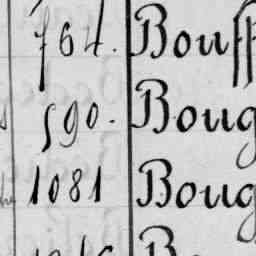 764. Bouff
590. Boug
1081 Boug